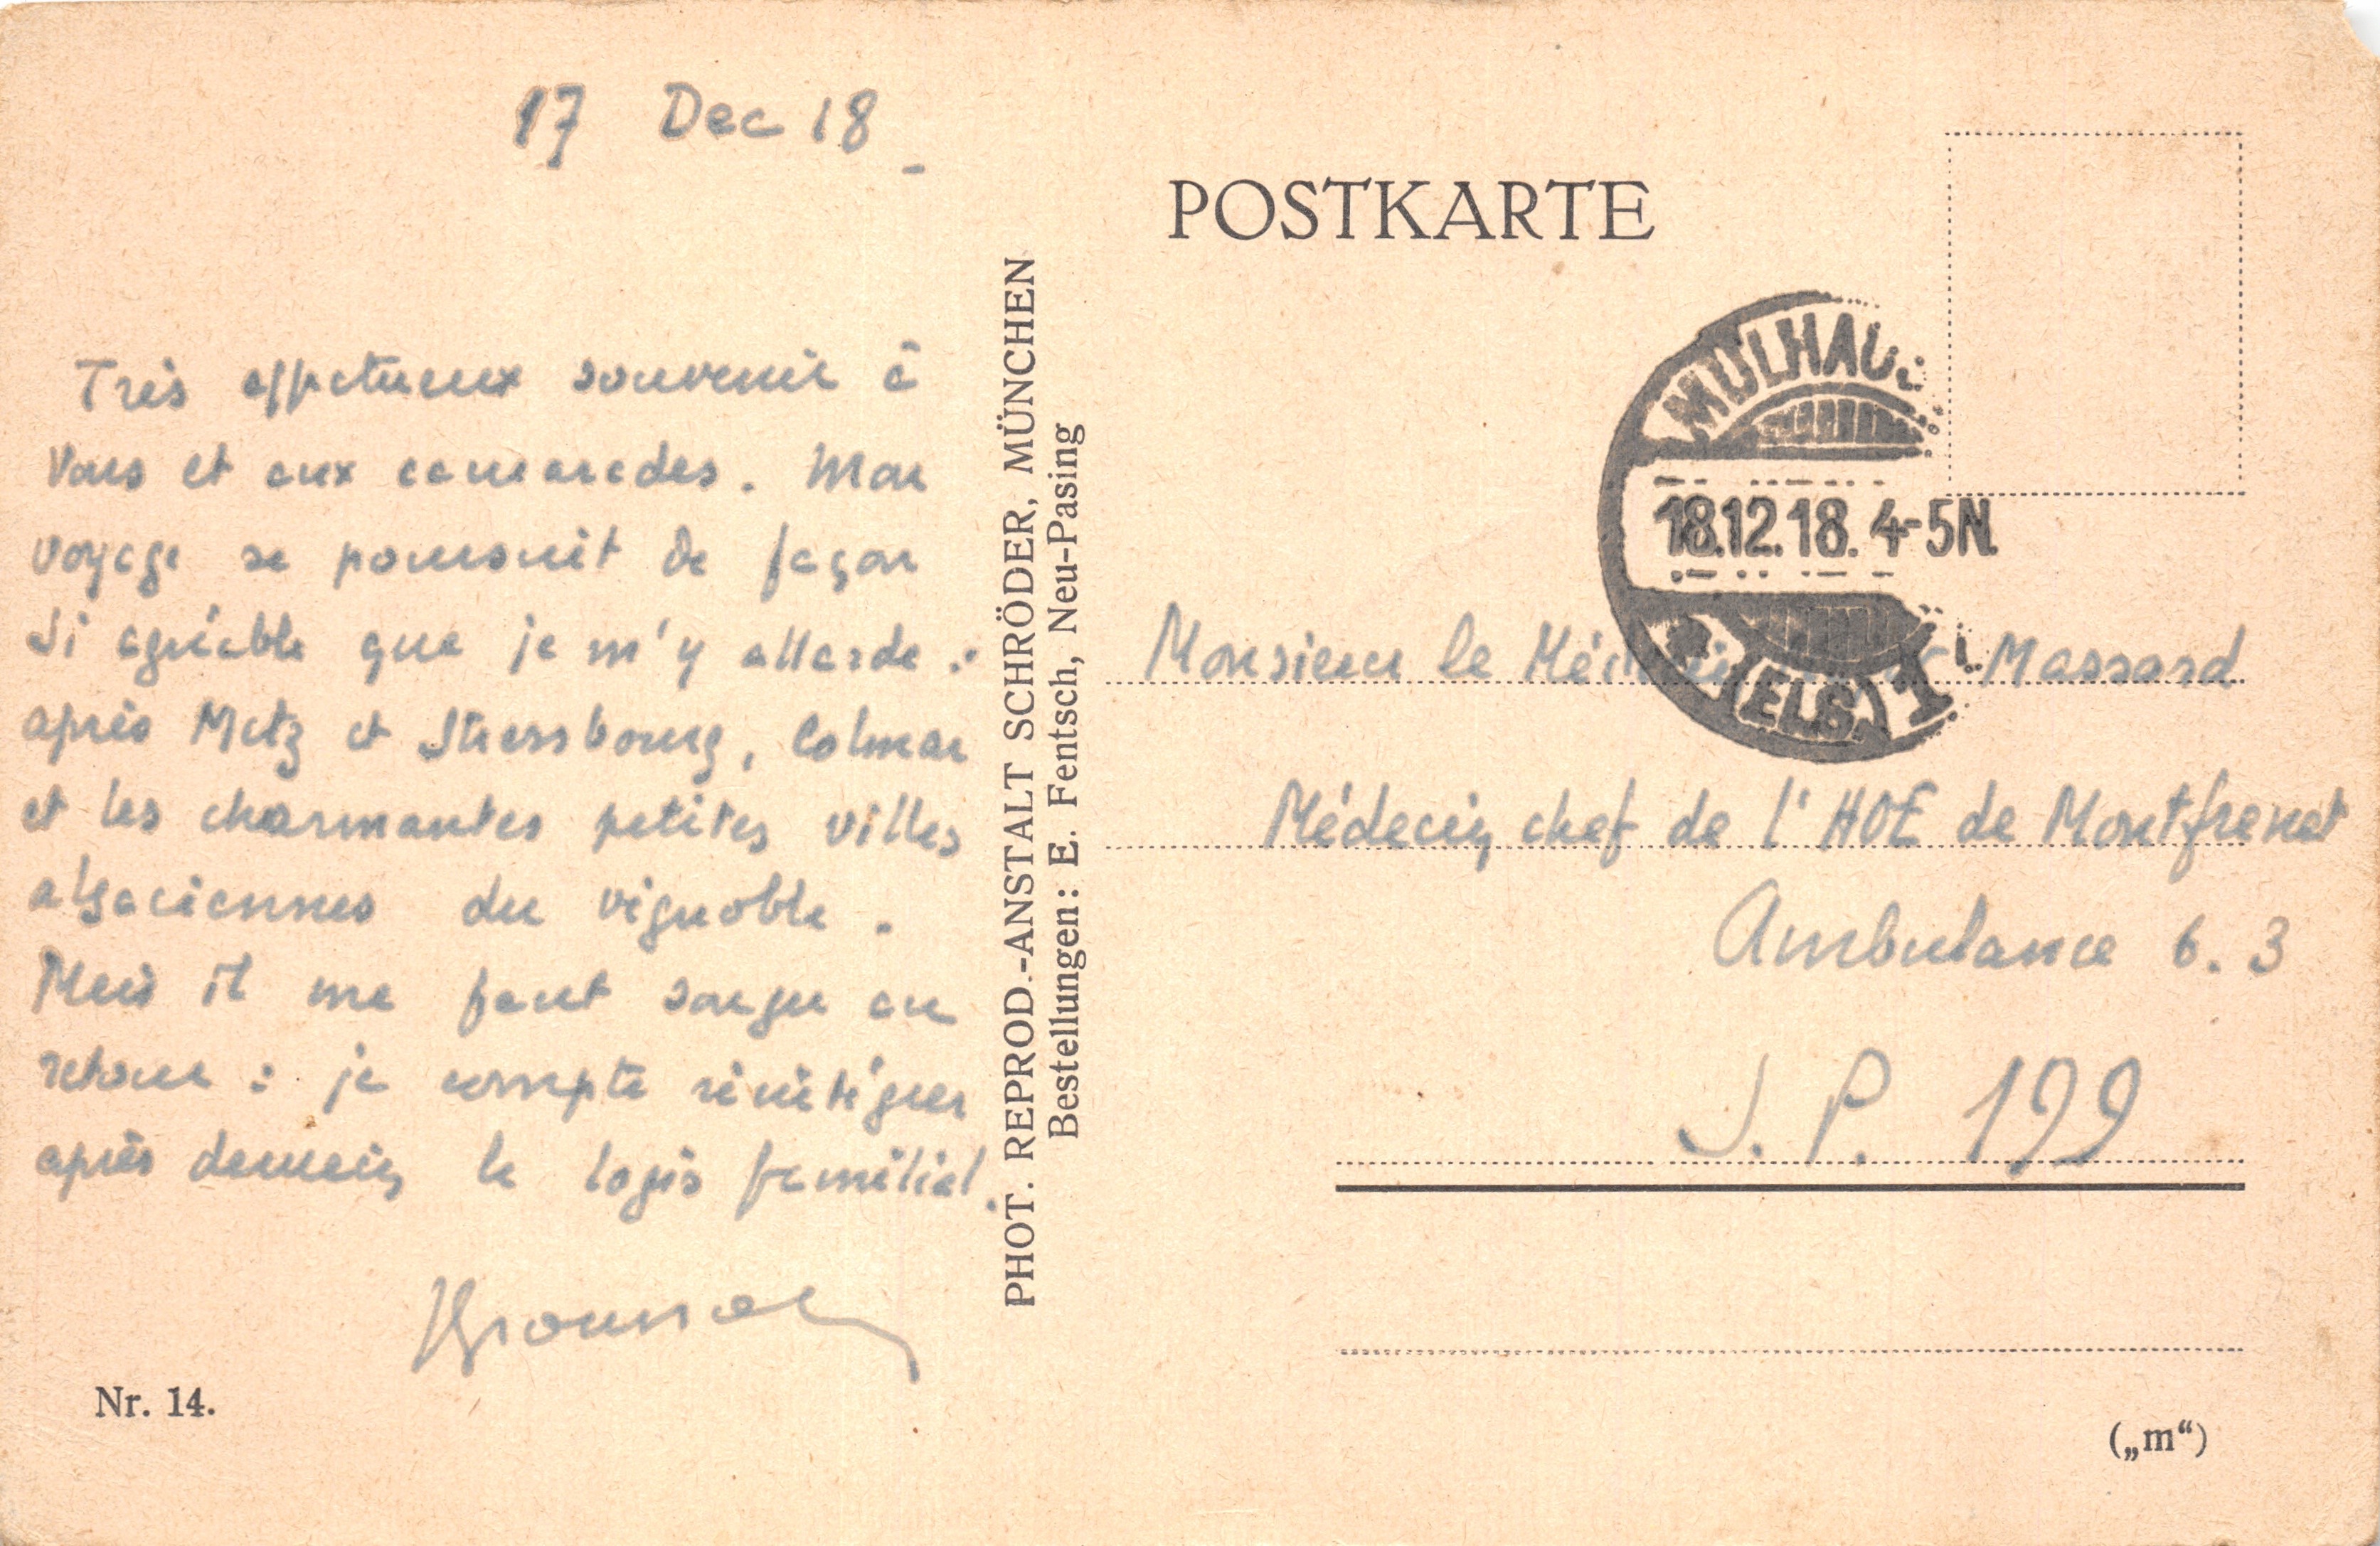 17 Dec 18
Très affectueux souvenir à
Vous et aux camarades. Mon
voyage se poursuit de façon
si agréable que je m'y attarde :
après Metz et Strassbourg, Colmar
et les charmantes petites villes
alsaciennes du vignoble.
Mais il me faut songer au
retour : je compte réintégrer
après demain le logis familial.
Nr. 14.
PHOT. REPROD.-ANSTALT SCHRÖDER, MÜNCHEN
Bestellungen: E. Fentsch, Neu-Pasing
POSTKARTE
MÜLHAUS
18.12.18. 4-5N.
(ELS.) 1
Monsieur le Massard
Médecin chef de l'HOE de Montfrenet
Ambulance 6.3
S. P. 199
(„m“)